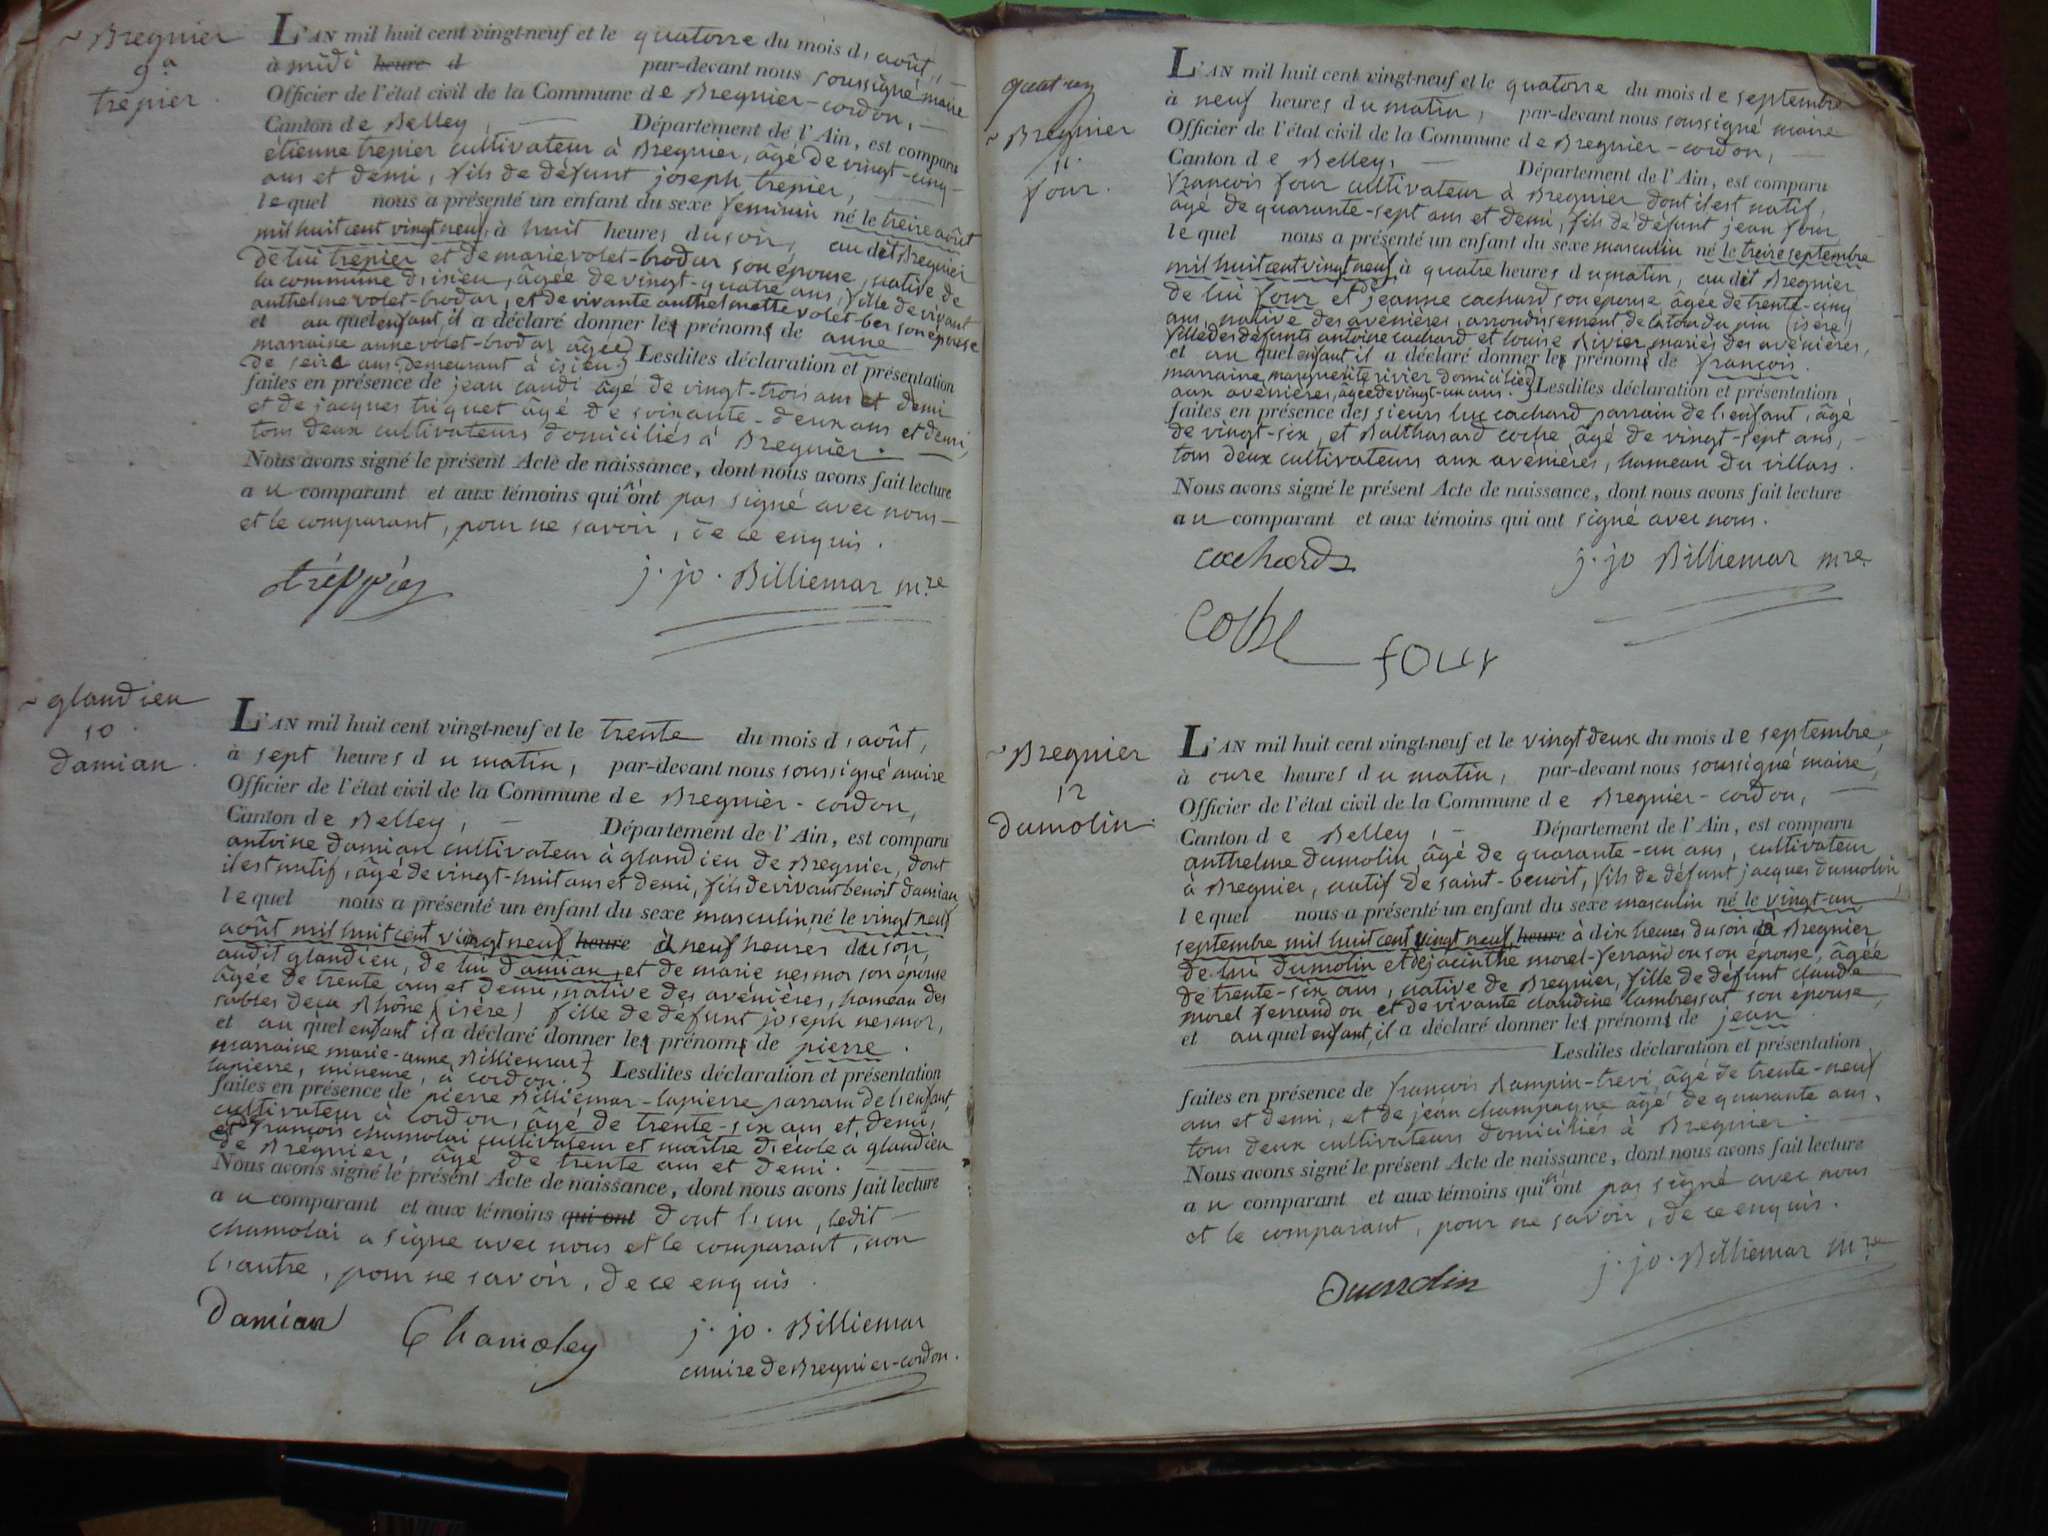 ~ Bregnier
9.a
trepier.
L'AN mil huit cent vingt-neuf et le quatorze du mois d'août,
à midi heure d par-devant nous soussigné maire
Officier de l'état civil de la Commune de Bregnier-cordon,
Canton de Belley, Département de l'Ain, est comparu
étienne trepier cultivateur à Bregnier, âgé de vingt-cinq
ans et demi, fils de défunt joseph trepier,
lequel nous a présenté un enfant du sexe feminin né le treize août
mil huit cent vingt neuf, à huit heures du soir, au dit Bregnier
de lui trepier et de marie volet-brodar son épouse, native de
la commune d'isieu, âgée de vingt-quatre ans, fille de vivant
anthelme volet-brodar, et de vivante anthelmette volet-ber son épouse
et auquel enfant, il a déclaré donner les prénoms de anne
marraine anne volet-brodar âgée
de seize ans demeurant à isieu} Lesdites déclaration et présentation
faites en présence de jean candi âgé de vingt-trois ans et demi
et de jacques triquet âgé de soixante-deux ans et demi,
tous deux cultivateurs domiciliés à Bregnier.
Nous avons signé le présent Acte de naissance, dont nous avons fait lecture
au comparant et aux témoins qui n'ont pas signé avec nous
et le comparant, pour ne savoir, de ce enquis.
tréppier j. jo. Billiemar m.re
~ glandieu
10.
damian.
L'AN mil huit cent vingt-neuf et le trente du mois d'août,
à sept heures du matin, par-devant nous soussigné maire
Officier de l'état civil de la Commune de Bregnier-cordon,
Canton de Belley, Département de l'Ain, est comparu
antoine damian cultivateur à glandieu de Bregnier, dont
il est natif, âgé de vingt-huit ans et demi, fils de vivant benoit damian
lequel nous a présenté un enfant du sexe masculin, né le vingt neuf
août mil huit cent vingt neuf heure à neuf heures du soir,
audit glandieu, de lui damian, et de marie nesmoz son épouse
âgée de trente ans et demi, native des avénières, hameau des
sables deça Rhône, (isère) fille de défunt joseph nesmoz,
et auquel enfant il a déclaré donner les prénoms de pierre.
marraine marie-anne Billiemar
lapierre, mineure, à cordon.} Lesdites déclaration et présentation
faites en présence de pierre Billiemar-lapierre parrain de l'enfant,
cultivateur à cordon, âgé de trente-six ans et demi,
et de françois chamolai cultivateur et maître d'école à glandieu
de Bregnier, âgé de trente ans et demi.
Nous avons signé le présent Acte de naissance, dont nous avons fait lecture
au comparant et aux témoins qui ont dont l'un, ledit
chamolai a signé avec nous et le comparant, non
l'autre, pour ne savoir, de ce enquis.
damian Chamoley j. jo. Billiemar
maire de Bregnier-cordon.
quat-un
~ Bregnier
11.
four.
L'AN mil huit cent vingt-neuf et le quatorze du mois de septembre
à neuf heures du matin, par-devant nous soussigné maire
Officier de l'état civil de la Commune de Bregnier-cordon,
Canton de Belley, Département de l'Ain, est comparu
françois four cultivateur à Bregnier dont il est natif,
âgé de quarante-sept ans et demi, fils de défunt jean four
lequel nous a présenté un enfant du sexe masculin né le treize septembre
mil huit cent vingt neuf, à quatre heures du matin, au dit Bregnier
de lui four et de jeanne cachard son épouse âgée de trente-cinq
ans, native des avénières, arrondissement de la tour du pin (isère)
fille des défunts antoine cachard et louise Rivier mariés des avénières,
et auquel enfant il a déclaré donner les prénoms de françois.
marraine marguerite rivier domiciliée
aux avénières, âgée de vingt-un ans.} Lesdites déclaration et présentation
faites en présence des sieurs luc cachard parrain de l'enfant, âgé
de vingt-six, et Balthasard coche âgé de vingt-sept ans,
tous deux cultivateurs aux avénières, hameau du villars.
Nous avons signé le présent Acte de naissance, dont nous avons fait lecture
au comparant et aux témoins qui ont signé avec nous.
cachard j. jo Billiemar m.re
coche four
~ Bregnier
12
dumolin.
L'AN mil huit cent vingt-neuf et le vingt deux du mois de septembre,
à onze heures du matin, par-devant nous soussigné maire,
Officier de l'état civil de la Commune de Bregnier-cordon,
Canton de Belley, Département de l'Ain, est comparu
anthelme dumolin âgé de quarante-un ans, cultivateur
à Bregnier, natif de saint-benoit, fils de défunt jacques dumolin,
lequel nous a présenté un enfant du sexe masculin né le vingt-un
septembre mil huit cent vingt neuf, heure à dix heures du soir à Bregnier
de lui dumolin et de jacinthe morel-ferrandon son épouse, âgée
de trente-six ans, native de Bregnier, fille de défunt claude
morel ferrandon et de vivante claudine lambressat son épouse,
et auquel enfant, il a déclaré donner les prénoms de jean
Lesdites déclaration et présentation
faites en présence de françois Rampin-trevi, âgé de trente-neuf
ans et demi, et de jean champagne âgé de quarante ans,
tous deux cultivateurs domiciliés à Bregnier
Nous avons signé le présent Acte de naissance, dont nous avons fait lecture
au comparant et aux témoins qui n'ont pas signé avec nous
et le comparant, pour ne savoir, de ce enquis.
dumolin j. jo. Billiemar m.re